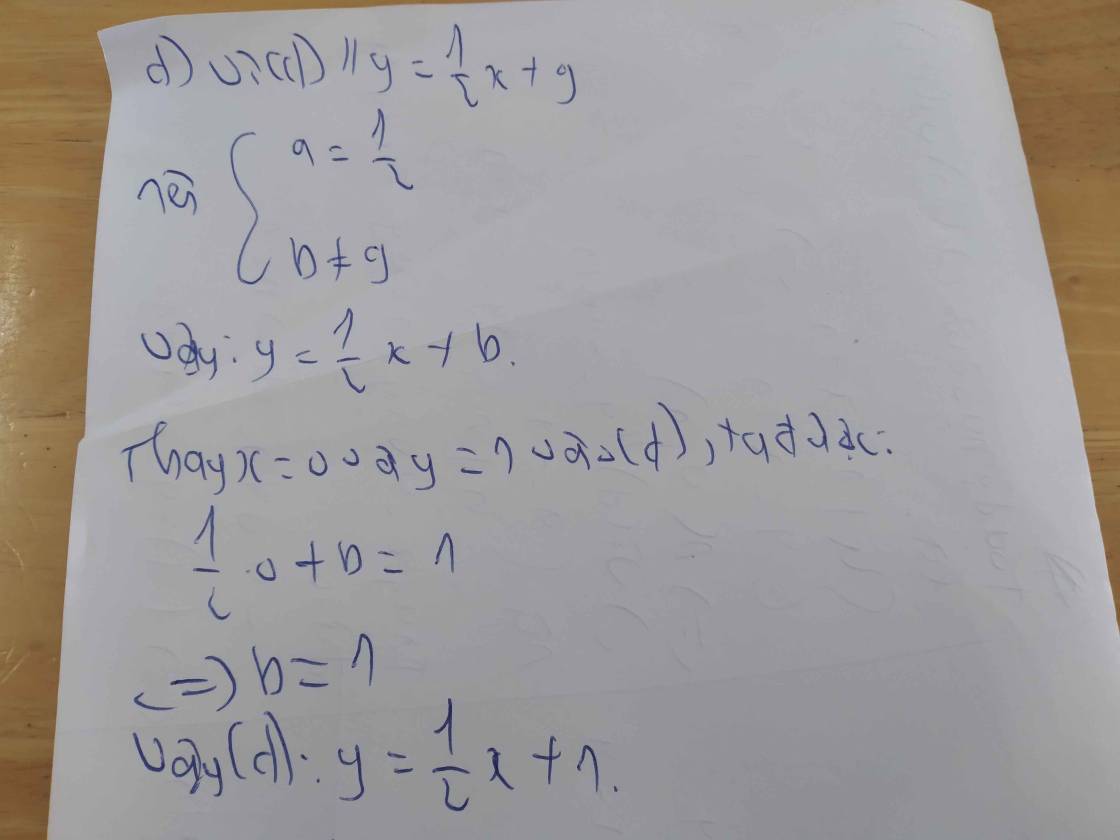 d) Vì (d) // y = 1/2 x + 9
nên { a = 1/2
b ≠ 9
Vậy: y = 1/2 x + b.
Thay x = 0 và y = 1 vào (d), ta được:
1/2 . 0 + b = 1
<=> b = 1
Vậy (d): y = 1/2 x + 1.